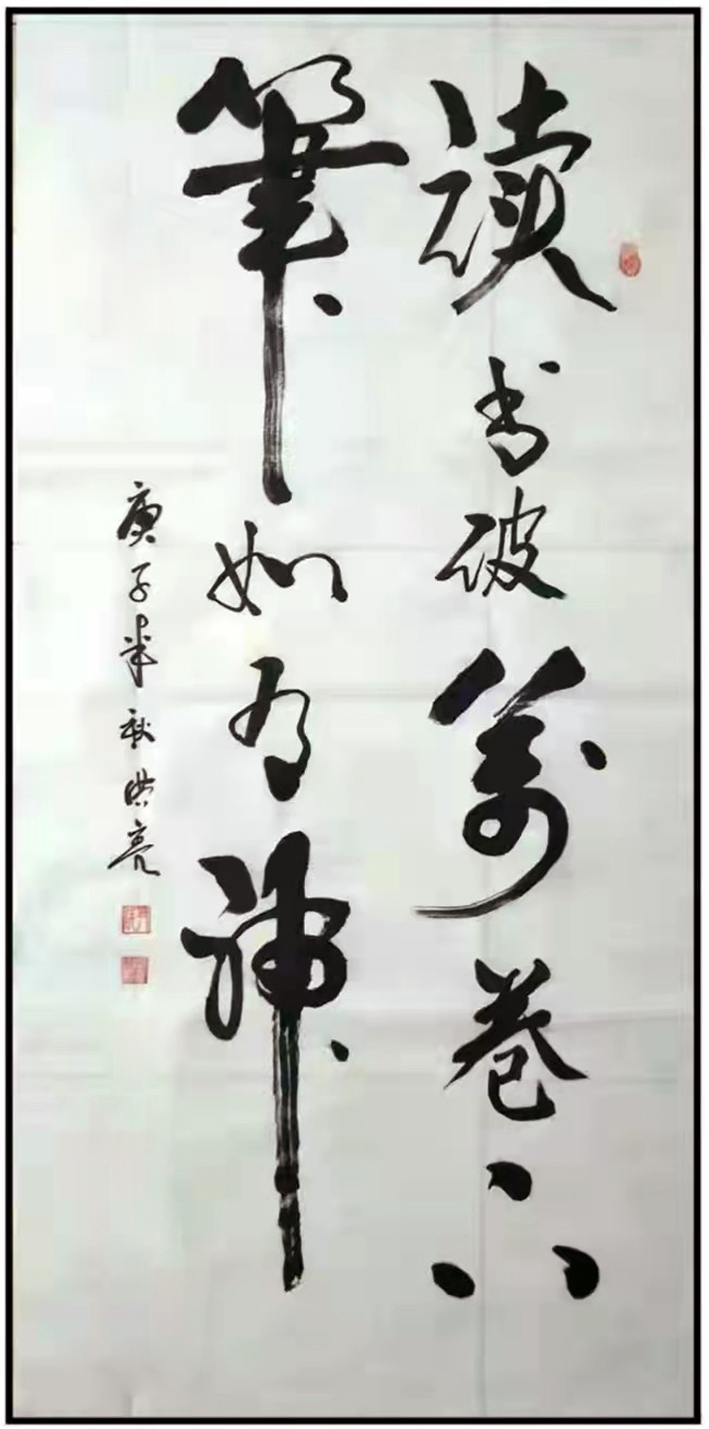 读书破萬卷下
筆如有神
庚子年秋洪亮